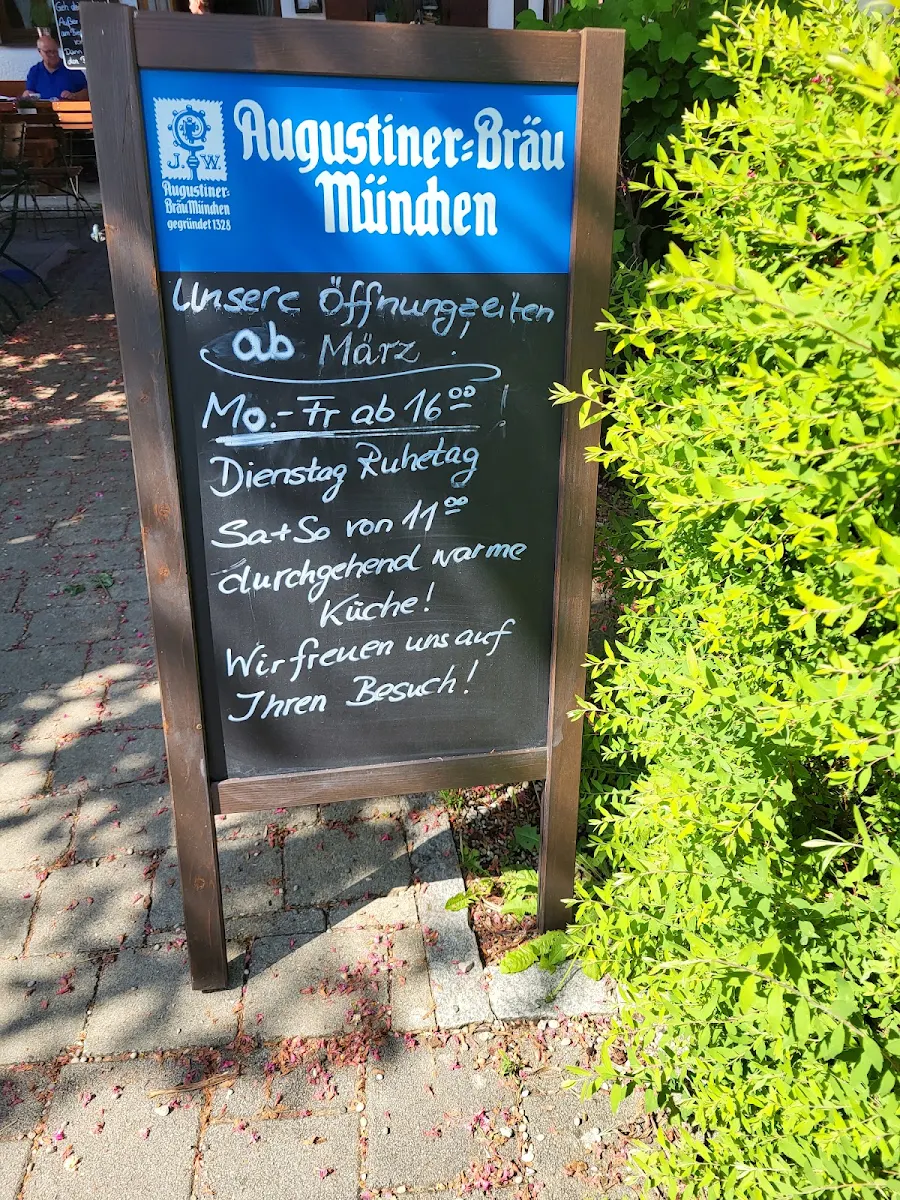 Augustiner=Bräu
München
J. W.
Augustiner=
Bräu München
gegründet 1328
Unsere Öffnungzeiten
ab März !
Mo.-Fr ab 16 00 !
Dienstag Ruhetag
Sa+So von 11 00
durchgehend warme
Küche!
Wir freuen uns auf
Ihren Besuch!